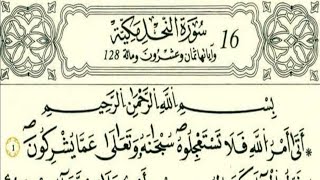 سُورَةُ النَّحْلِ مَكِّيَّة 16
وَآيَاتُهَا ثَمَانٍ وَعِشْرُونَ وَمِائَة 128
بِسْمِ اللَّهِ الرَّحْمَٰنِ الرَّحِيمِ
أَتَىٰ أَمْرُ اللَّهِ فَلَا تَسْتَعْجِلُوهُ سُبْحَانَهُ وَتَعَالَىٰ عَمَّا يُشْرِكُونَ ١